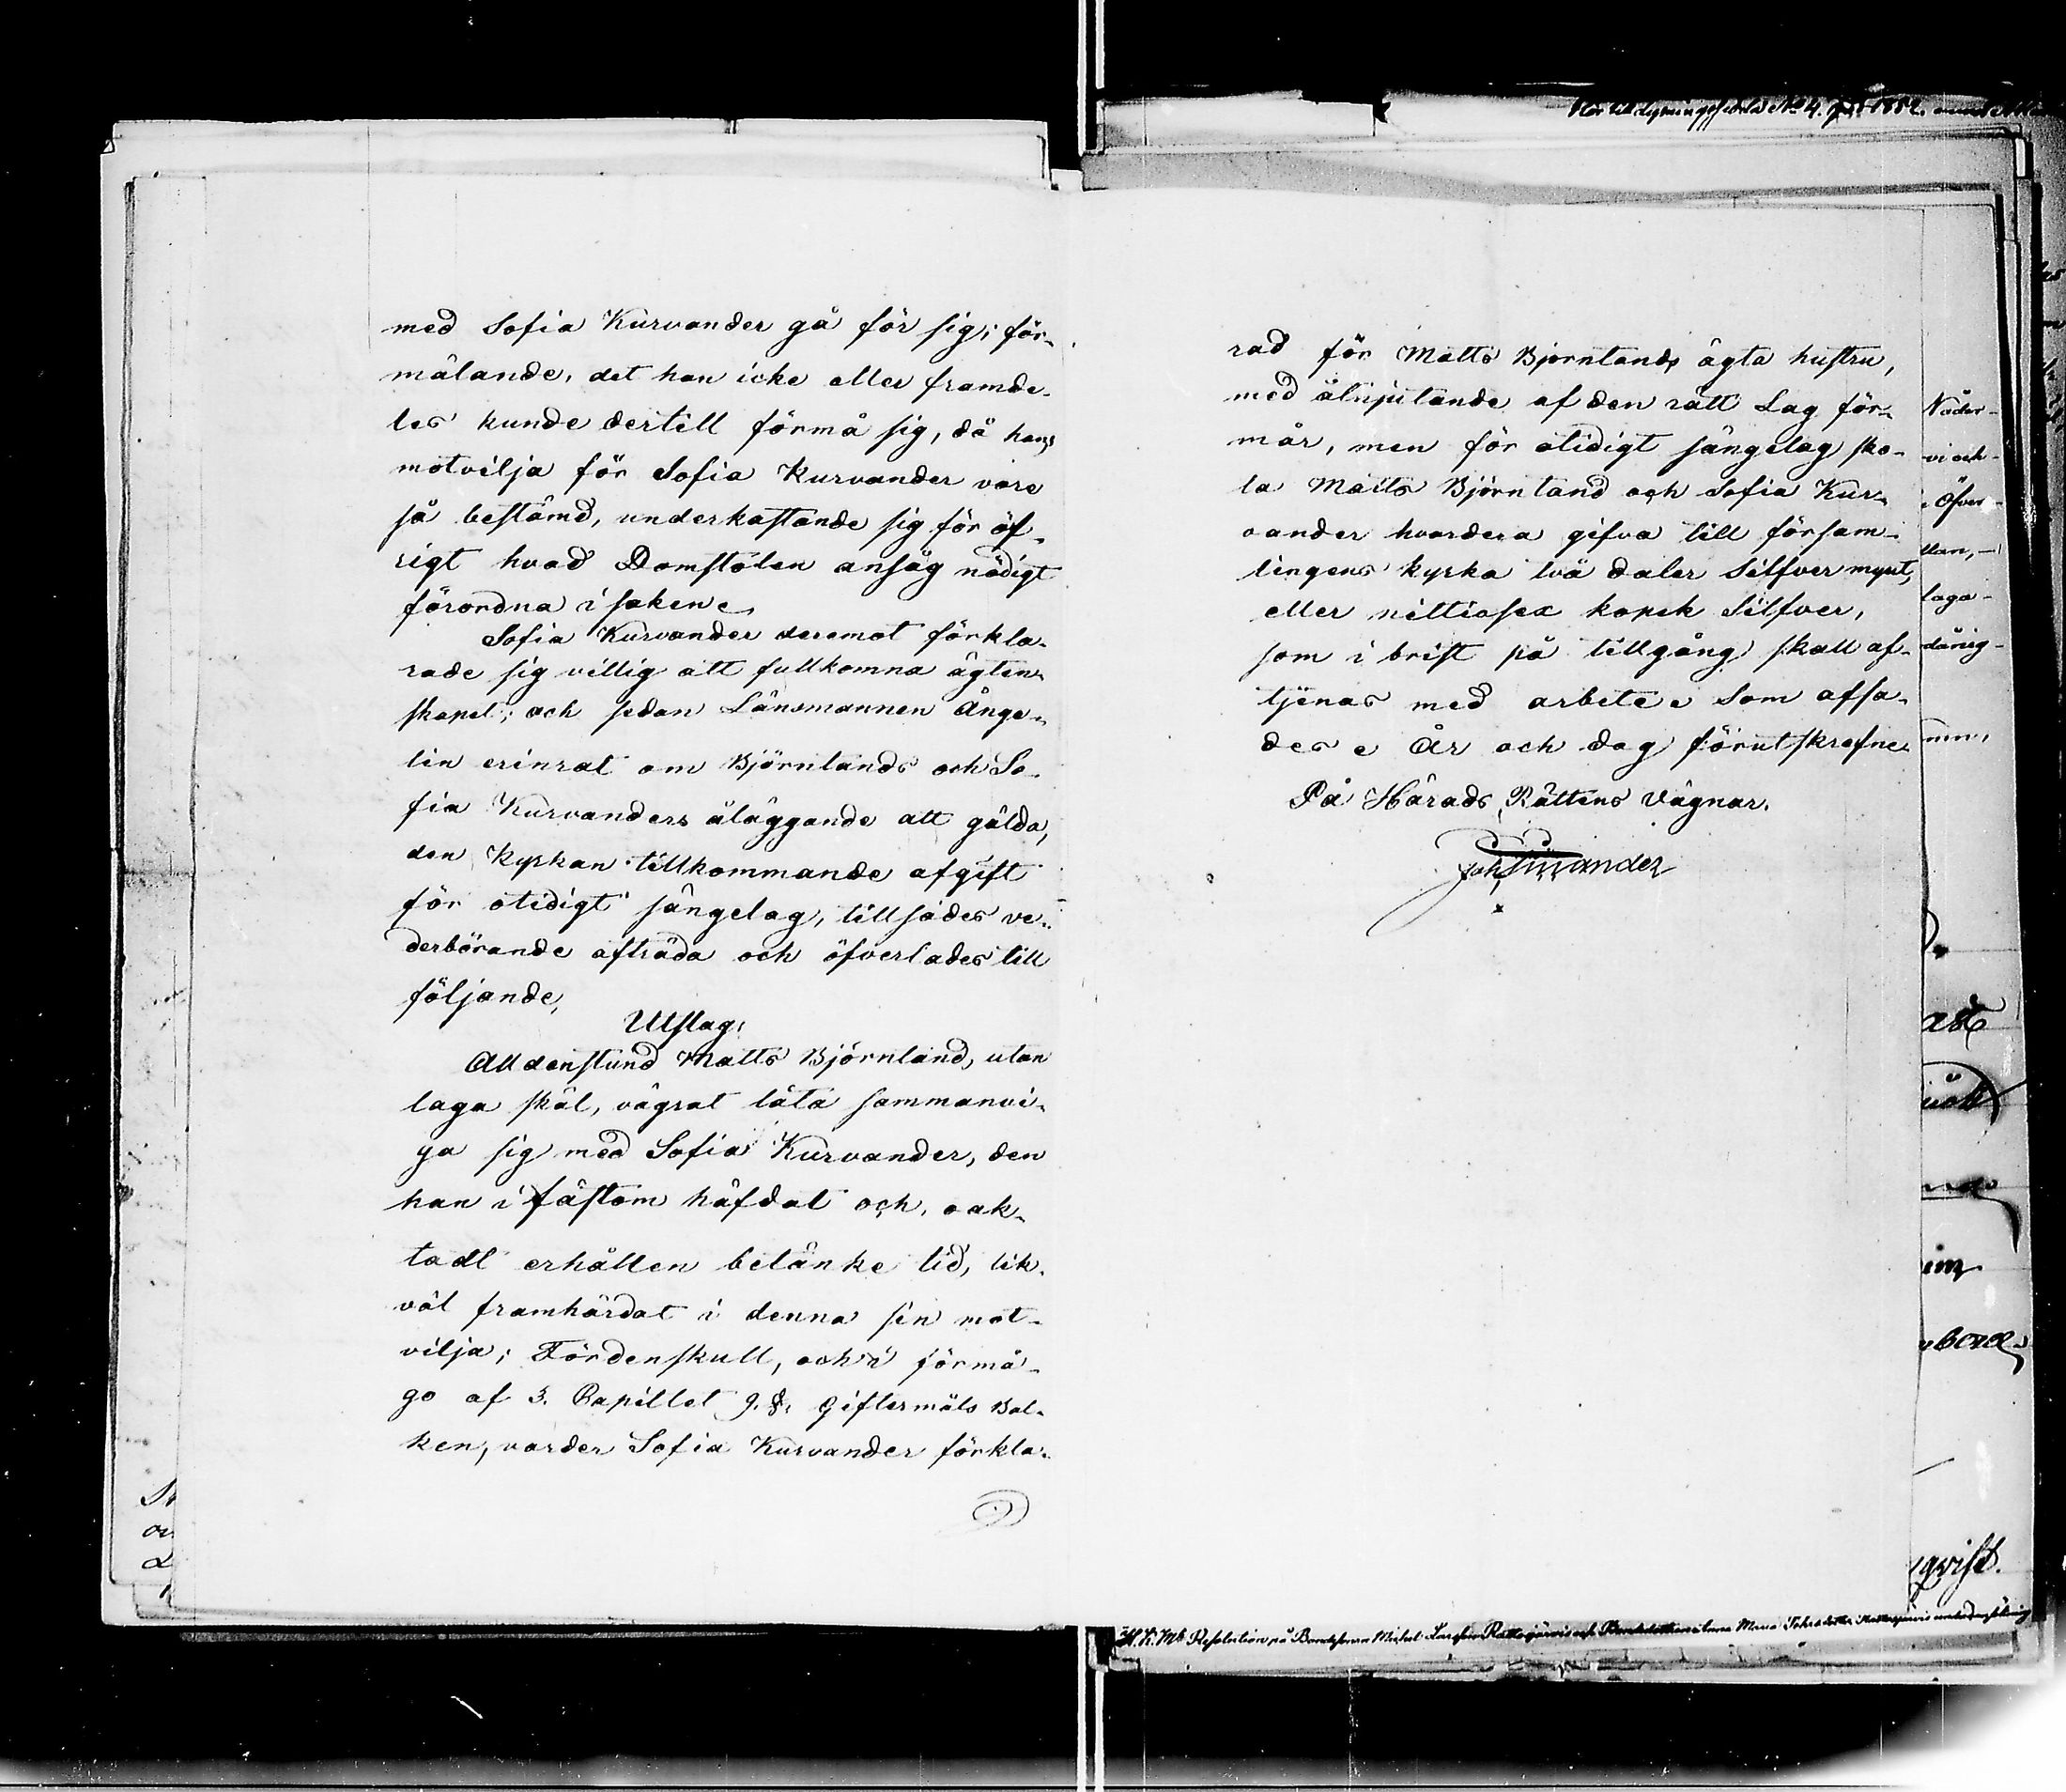 med Sofia Kurvander gå för sig; för-
mälande, det han icke eller framde-
les kunde dertill förmå sig, då hans
motvilja för Sofia Kurvander vore
så bestämd, underkastande sig för öf-
rigt hvad Domstolen ansåg nödigt
förordna i saken.
Sofia Kurvander deremot förkla-
rade sig villig att fullkomna ägten-
skapet; och sedan Länsmannen Ånge-
lin erinrat om Björnlands och So-
fia Kurvanders åläggande att gälda,
den kyrkan tillkommande afgift
för otidigt sängelag, tillsades ve-
derbörande afträda och öfverlades till
följande,
Utslag:
Alldenstund Matts Björnland, utan
laga skäl, vägrat låta sammanvi-
ga sig med Sofia Kurvander, den
han i fästom häfdat och, oak-
tadt erhållen betänke tid, lik-
väl framhärdat i denna sin mot-
vilja; Fördenskull, och i förmå-
go af 3. Capitlet 9. §. Giftermåls Bal-
ken, varder Sofia Kurvander förkla-
rad för Matts Björnlands ägta hustru,
med åtnjutande af den rätt Lag för-
mår, men för otidigt sängelag sko-
la Matts Björnland och Sofia Kur-
vander hvardera gifva till försam-
lingens kyrka två daler Silfvermynt,
eller nittiosex kopek Silfver,
som i brist på tillgång skall af-
tjenas med arbete. Som afsa-
des. År och dag förutskrefne
På Härads Rättens Vägnar.
Nåder-
vi och
Öfver
laga-
qvist.